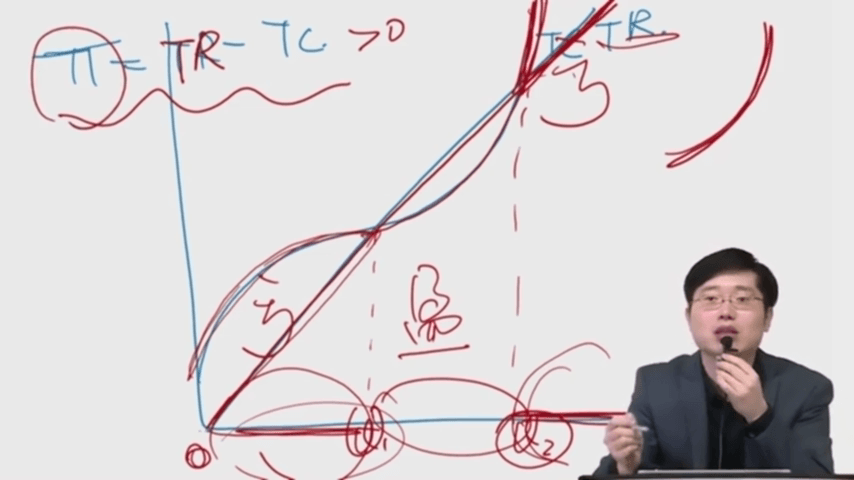 π = TR - TC > 0
TC TR
亏
亏
盈
0 Q1 Q2